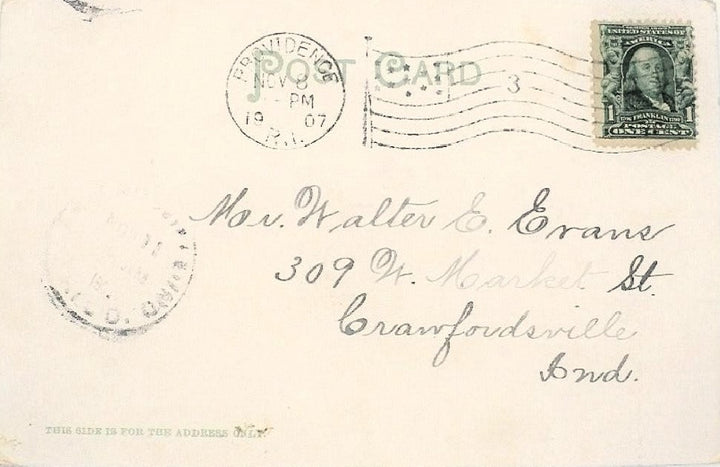 POST CARD
PROVIDENCE
NOV 8
- PM
19 07
R.I.
3
UNITED STATES OF
AMERICA
1 FRANKLIN 1
POSTAGE
ONE CENT
Mr. Walter E. Evans
309 W. Market St.
Crawfordsville
Ind.
THIS SIDE IS FOR THE ADDRESS ONLY.